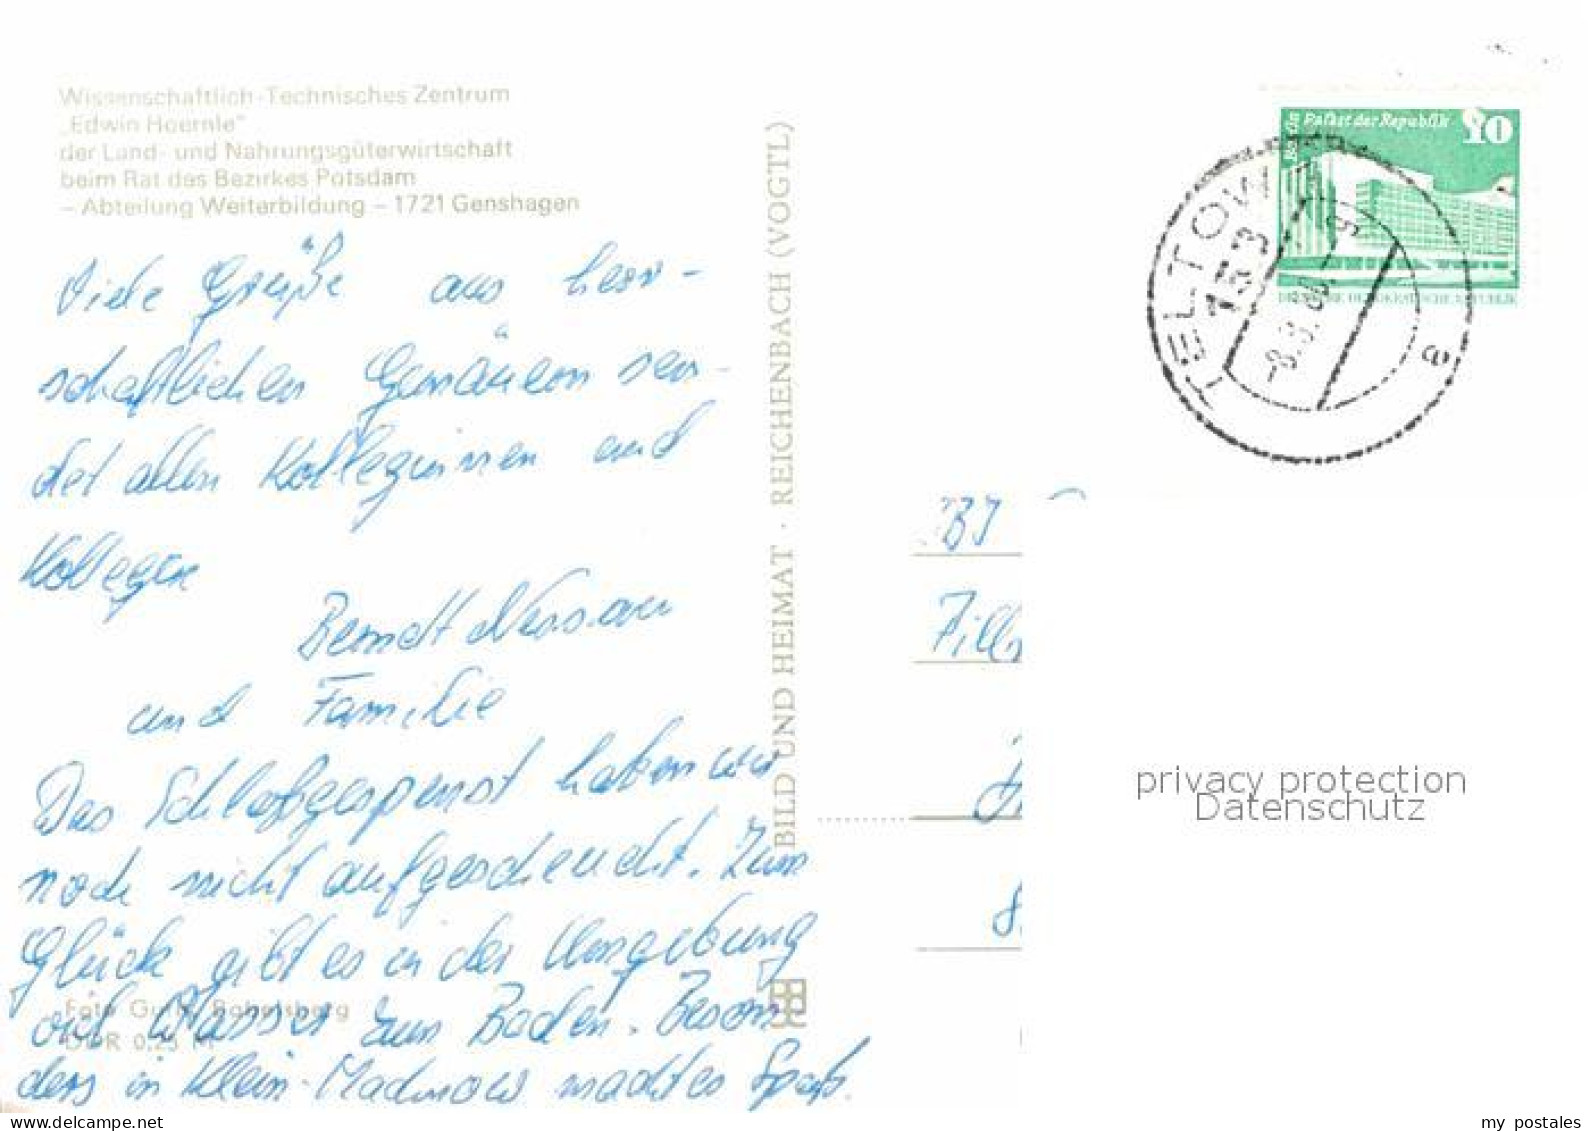 Wissenschaftlich-Technisches Zentrum
„Edwin Hoernle"
der Land- und Nahrungsgüterwirtschaft
beim Rat des Bezirkes Potsdam
– Abteilung Weiterbildung – 1721 Genshagen
Viele Grüße aus herr-
schaftlichen Gemäuern sen-
det allen Kolleginnen und
Kollegen
Berndt
und Familie
Das Schloßgespenst haben wir
noch nicht aufgescheucht. Zum
Glück gibt es in der Umgebung
viel Wasser zum Baden. Beson-
ders in Klein-Machnow macht es Spaß.
Foto Babelsberg
DDR 0,25 M
BILD UND HEIMAT · REICHENBACH (VOGTL)
Berlin Palast der Republik 10
DEUTSCHE DEMOKRATISCHE REPUBLIK
TELTOW
153
a
privacy protection
Datenschutz
my postales
delcampe.net